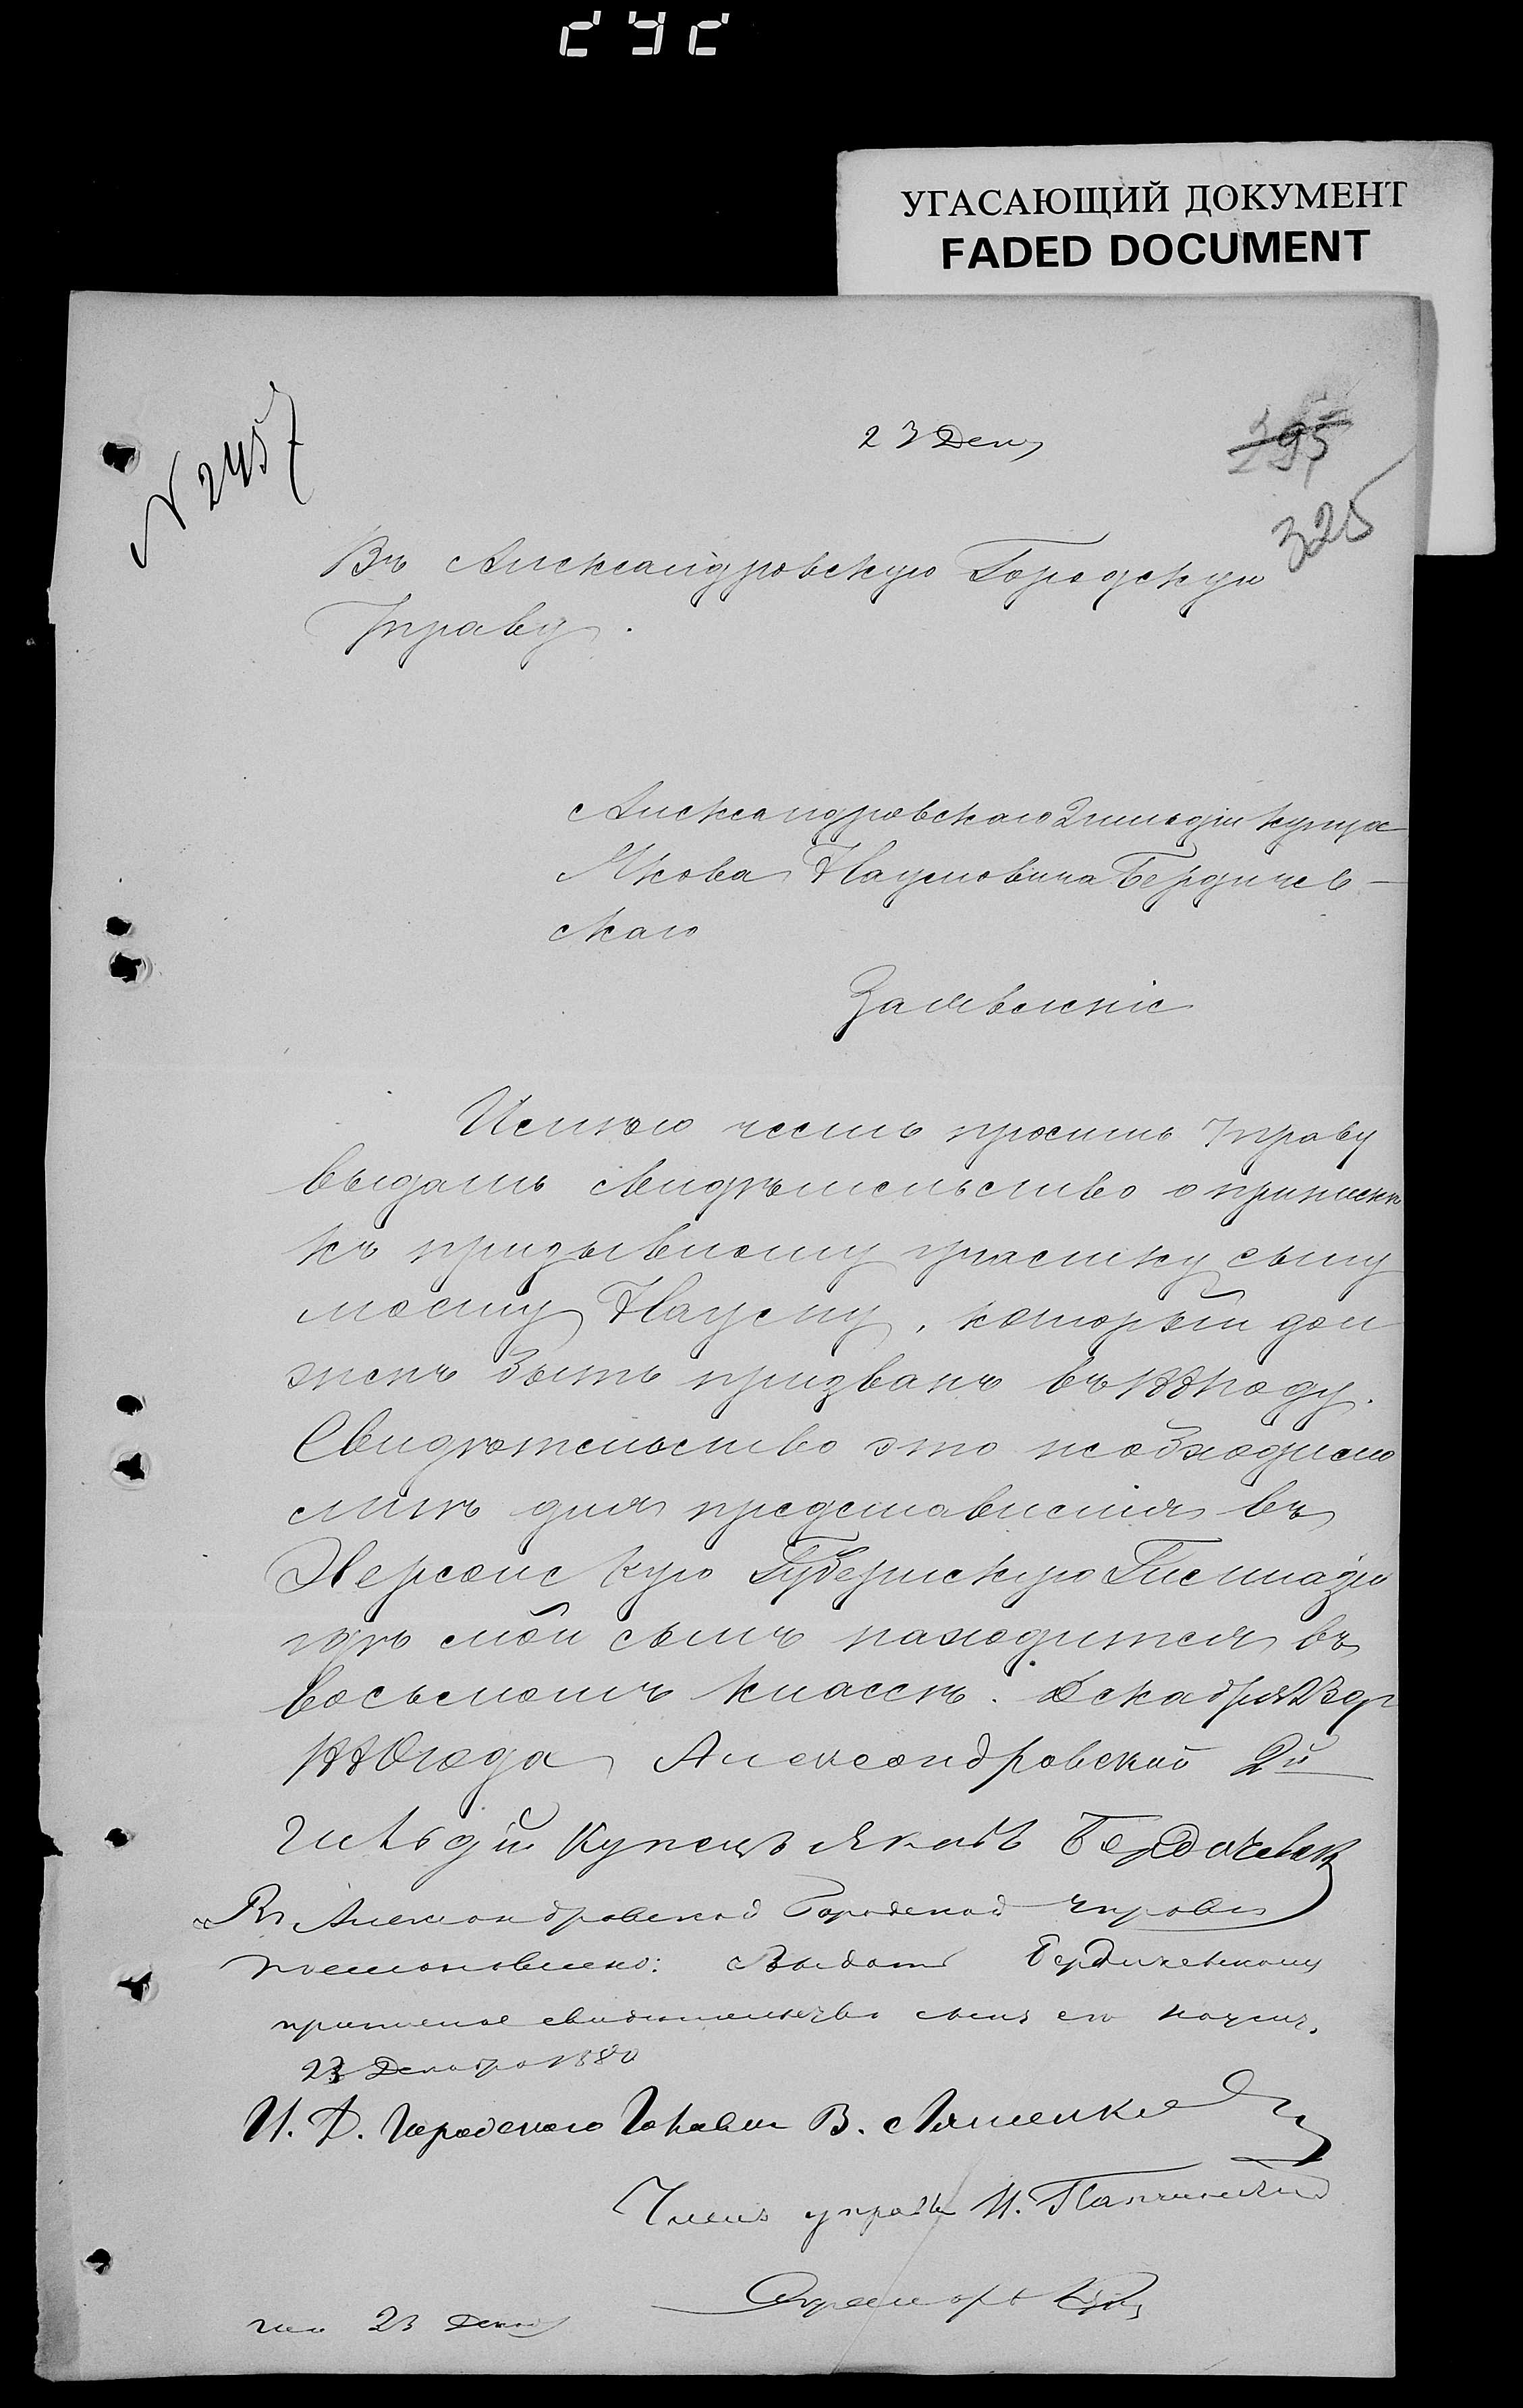 УГАСАЮЩИЙ ДОКУМЕНТ
FADED DOCUMENT
N 2457
23 Дек
295
325
Въ Александровскую Городскую
Управу.
Александровскаго 2 гильдіи купца
Якова Наумовича Бердичев-
скаго
Заявленіе
Имѣю честь просить Управу
выдать свидѣтельство о припискѣ
къ призывному участку сыну
моему Науму, который дол
женъ быть призванъ въ году.
Свидѣтельство это необходимо
мнѣ для представленія въ
Херсонскую Губернскую Гимназію
гдѣ мой сынъ находится въ
восьмомъ классѣ. Декабря 23 дн
1880 года Александровскій 2й
гильдіи Купецъ Яковъ Бердичевск
Въ Александровской Городской Управѣ
постановлено: Выдать Бердичевскому
приписное свидѣтельство сына его Наума.
23 Декабря 1880
И. Д. Городского Головы В. Ляшенко
Членъ управы И.
23 Дека